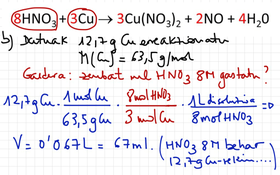 8HNO₃ + 3Cu → 3Cu(NO₃)₂ + 2NO + 4H₂O
b) Datuak 12,7g Cu erreakzionatu
M(Cu) = 63,5 g/mol
Galdera: zenbat ml HNO₃ 8M gastatu?
12,7g Cu · 1mol Cu / 63,5g Cu · 8mol HNO₃ / 3mol Cu · 1L disoluzio / 8mol HNO₃ =
V = 0'067L = 67ml. (HNO₃ 8M behar
12,7g Cu-rekin....)